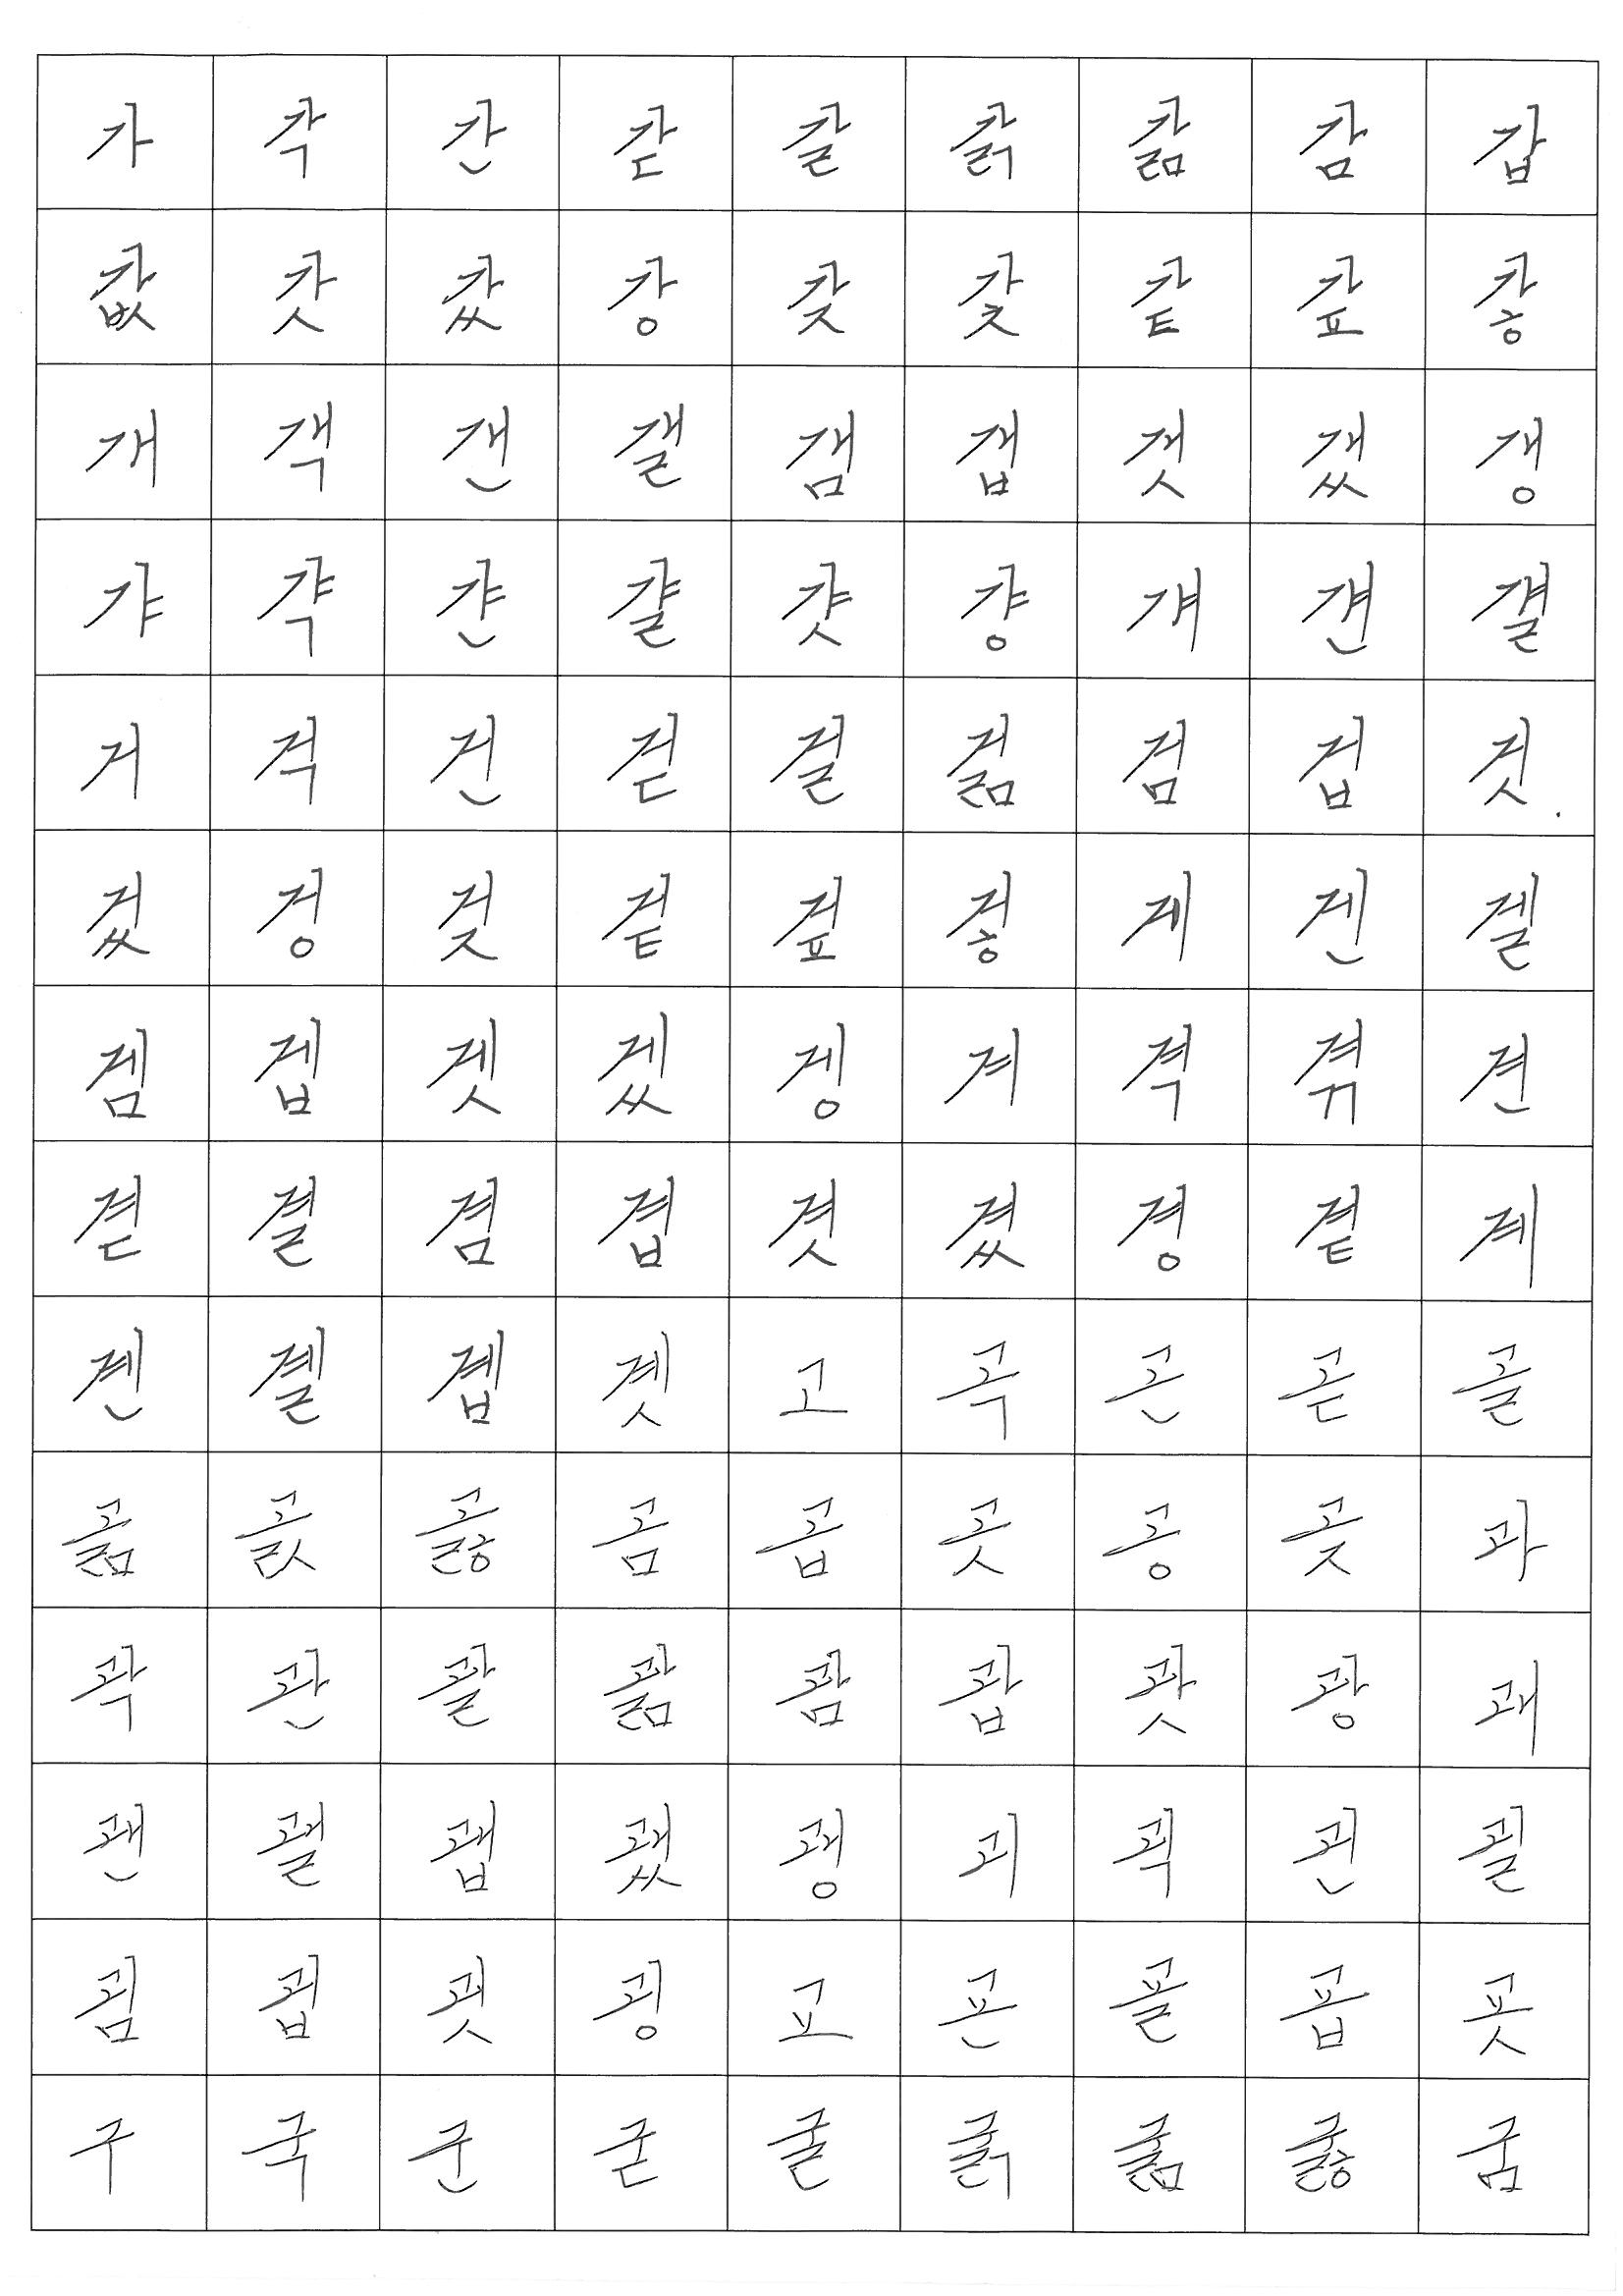 가 각 간 갇 갈 갉 갊 감 갑
값 갓 갔 강 갖 갗 같 갚 갛
개 객 갠 갤 갬 갭 갯 갰 갱
갸 갹 갼 걀 갓 걍 걔 걘 걜
거 걱 건 걷 걸 걺 검 겁 것
겄 겅 겆 겉 겊 겋 게 겐 겔
겜 겝 겟 겠 겡 겨 격 겪 견
겯 결 겸 겹 겻 겼 경 곁 계
곈 곌 곕 곗 고 곡 곤 곧 골
곪 곬 곯 곰 곱 곳 공 곶 과
곽 관 괄 괆 괌 괍 괏 광 괘
괜 괠 괩 괬 괭 괴 괵 괸 괼
굄 굅 굇 굉 교 굔 굘 굡 굣
구 국 군 굳 굴 굵 굶 굻 굼